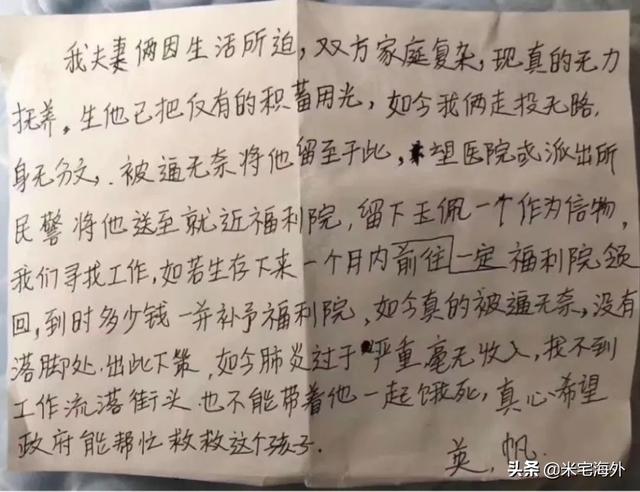 我夫妻俩因生活所迫，双方家庭复杂，现真的无力
抚养。生他已把仅有的积蓄用光，如今我俩走投无路，
身无分文，被逼无奈将他留至于此，望医院或派出所
民警将他送至就近福利院，留下玉佩一个作为信物，
我们寻找工作，如若生存下来一个月内前往一定福利院领
回，到时多少钱一并补予福利院，如今真的被逼无奈，没有
落脚处.出此下策，如今肺炎过于严重，毫无收入，找不到
工作流落街头也不能带着他一起饿死，真心希望
政府能帮忙救救这个孩子.
英.帆.
头条@米宅海外